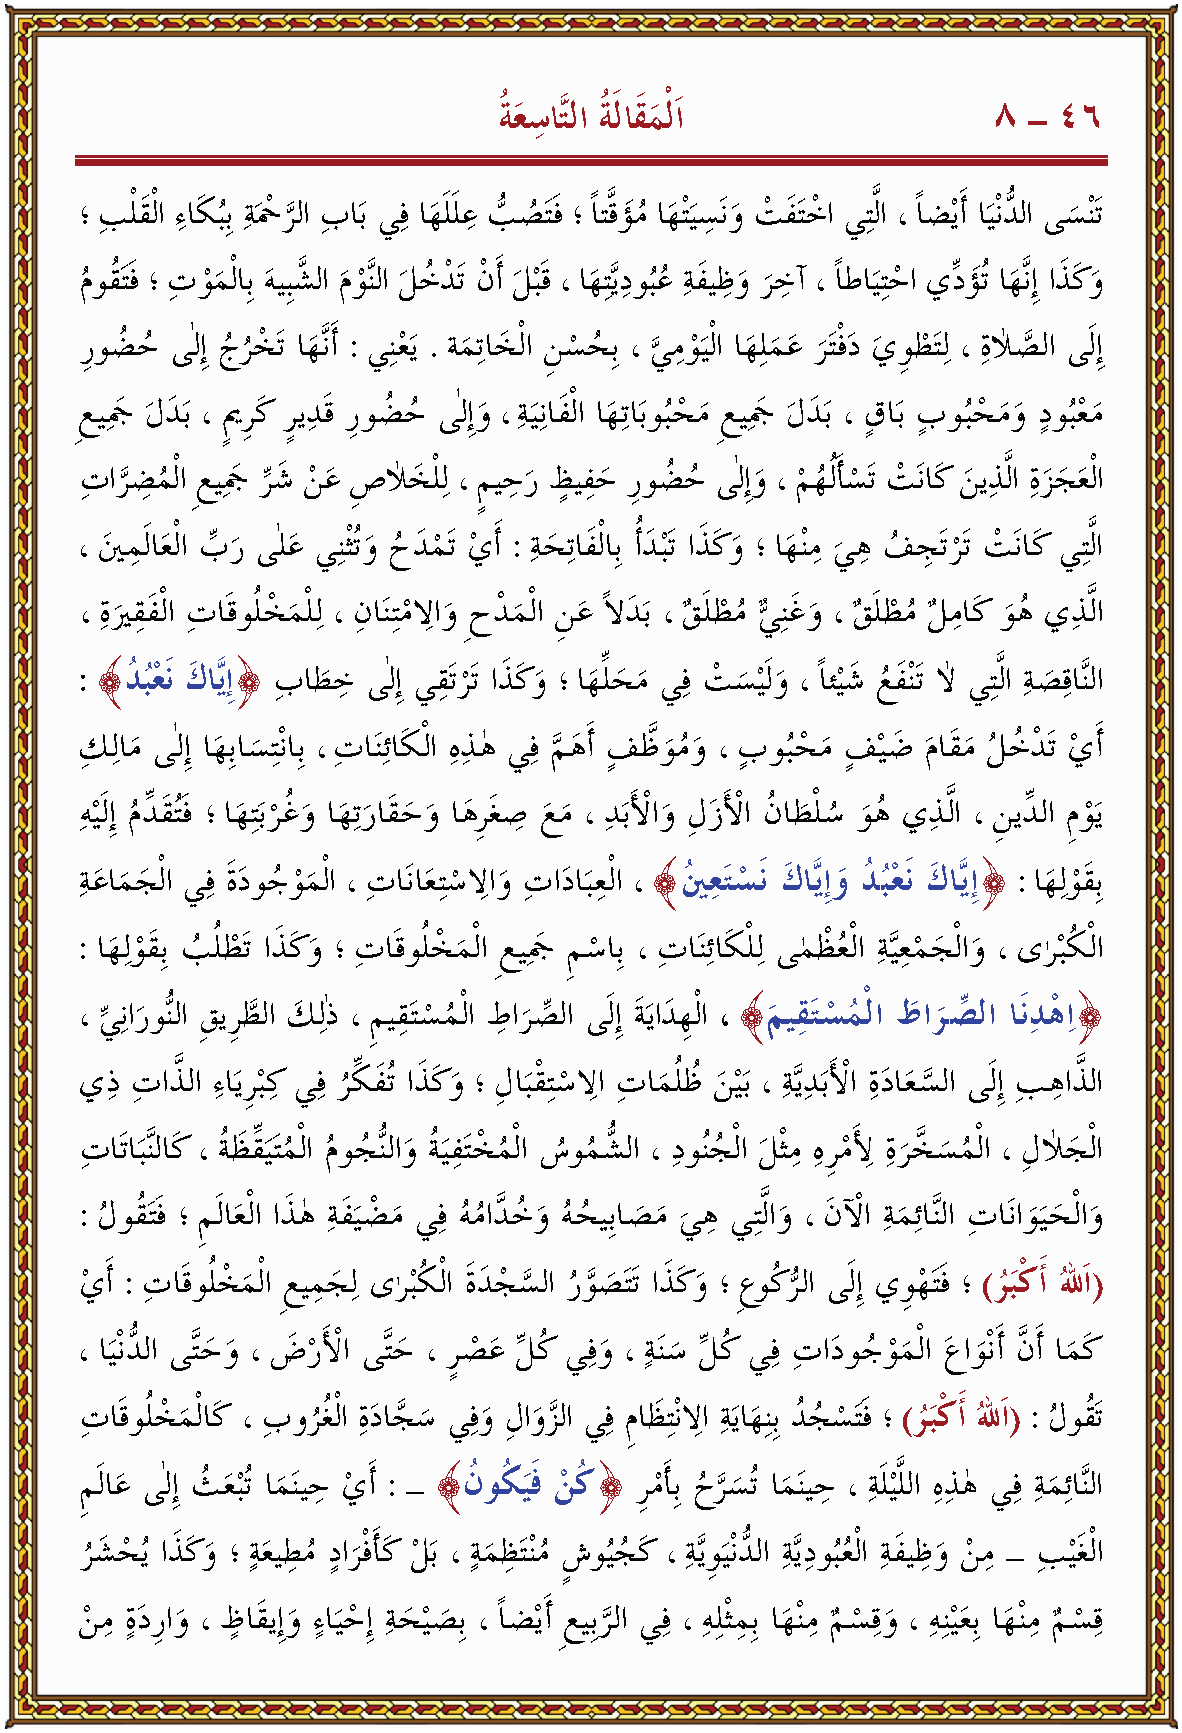 ٤٦ – ٨ اَلْمَقَالَةُ التَّاسِعَةُ
تَنْسَى الدُّنْيَا أَيْضاً ، الَّتِي اخْتَفَتْ وَنَسِيَتْهَا مُؤَقَّتاً ؛ فَتَصُبُّ عِلَلَهَا فِي بَابِ الرَّحْمَةِ بِبُكَاءِ الْقَلْبِ ؛
وَكَذَا إِنَّهَا تُؤَدِّي احْتِيَاطاً ، آخِرَ وَظِيفَةِ عُبُودِيَّتِهَا ، قَبْلَ أَنْ تَدْخُلَ النَّوْمَ الشَّبِيهَ بِالْمَوْتِ ؛ فَتَقُومُ
إِلَى الصَّلاٰةِ ، لِتَطْوِيَ دَفْتَرَ عَمَلِهَا الْيَوْمِيَّ ، بِحُسْنِ الْخَاتِمَة . يَعْنِي : أَنَّهَا تَخْرُجُ إِلٰى حُضُورِ
مَعْبُودٍ وَمَحْبُوبٍ بَاقٍ ، بَدَلَ جَمِيعِ مَحْبُوبَاتِهَا الْفَانِيَةِ ، وَإِلٰى حُضُورِ قَدِيرٍ كَرِيمٍ ، بَدَلَ جَمِيعِ
الْعَجَزَةِ الَّذِينَ كَانَتْ تَسْأَلُهُمْ ، وَإِلٰى حُضُورِ حَفِيظٍ رَحِيمٍ ، لِلْخَلاٰصِ عَنْ شَرِّ جَمِيعِ الْمُضِرَّاتِ
الَّتِي كَانَتْ تَرْتَجِفُ هِيَ مِنْهَا ؛ وَكَذَا تَبْدَأُ بِالْفَاتِحَةِ : أَيْ تَمْدَحُ وَتُثْنِي عَلٰى رَبِّ الْعَالَمِينَ ،
الَّذِي هُوَ كَامِلٌ مُطْلَقٌ ، وَغَنِيٌّ مُطْلَقٌ ، بَدَلاً عَنِ الْمَدْحِ وَالِامْتِنَانِ ، لِلْمَخْلُوقَاتِ الْفَقِيرَةِ ،
النَّاقِصَةِ الَّتِي لاٰ تَنْفَعُ شَيْئاً ، وَلَيْسَتْ فِي مَحَلِّهَا ؛ وَكَذَا تَرْتَقِي إِلٰى خِطَابِ ﴿إِيَّاكَ نَعْبُدُ﴾ :
أَيْ تَدْخُلُ مَقَامَ ضَيْفٍ مَحْبُوبٍ ، وَمُوَظَّفٍ أَهَمَّ فِي هٰذِهِ الْكَائِنَاتِ ، بِانْتِسَابِهَا إِلٰى مَالِكِ
يَوْمِ الدِّينِ ، الَّذِي هُوَ سُلْطَانُ الْأَزَلِ وَالْأَبَدِ ، مَعَ صِغَرِهَا وَحَقَارَتِهَا وَغُرْبَتِهَا ؛ فَتُقَدِّمُ إِلَيْهِ
بِقَوْلِهَا : ﴿إِيَّاكَ نَعْبُدُ وَإِيَّاكَ نَسْتَعِينُ﴾ ، الْعِبَادَاتِ وَالِاسْتِعَانَاتِ ، الْمَوْجُودَةَ فِي الْجَمَاعَةِ
الْكُبْرٰى ، وَالْجَمْعِيَّةِ الْعُظْمٰى لِلْكَائِنَاتِ ، بِاسْمِ جَمِيعِ الْمَخْلُوقَاتِ ؛ وَكَذَا تَطْلُبُ بِقَوْلِهَا :
﴿اِهْدِنَا الصِّرَاطَ الْمُسْتَقِيمَ﴾ ، الْهِدَايَةَ إِلَى الصِّرَاطِ الْمُسْتَقِيمِ ، ذٰلِكَ الطَّرِيقِ النُّورَانِيِّ ،
الذَّاهِبِ إِلَى السَّعَادَةِ الْأَبَدِيَّةِ ، بَيْنَ ظُلُمَاتِ الِاسْتِقْبَالِ ؛ وَكَذَا تُفَكِّرُ فِي كِبْرِيَاءِ الذَّاتِ ذِي
الْجَلاٰلِ ، الْمُسَخَّرَةِ لِأَمْرِهِ مِثْلَ الْجُنُودِ ، الشُّمُوسُ الْمُخْتَفِيَةُ وَالنُّجُومُ الْمُتَيَقِّظَةُ ، كَالنَّبَاتَاتِ
وَالْحَيَوَانَاتِ النَّائِمَةِ الْآنَ ، وَالَّتِي هِيَ مَصَابِيحُهُ وَخُدَّامُهُ فِي مَضْيَفَةِ هٰذَا الْعَالَمِ ؛ فَتَقُولُ :
(اَللهُ أَكْبَرُ) ؛ فَتَهْوِي إِلَى الرُّكُوعِ ؛ وَكَذَا تَتَصَوَّرُ السَّجْدَةَ الْكُبْرٰى لِجَمِيعِ الْمَخْلُوقَاتِ : أَيْ
كَمَا أَنَّ أَنْوَاعَ الْمَوْجُودَاتِ فِي كُلِّ سَنَةٍ ، وَفِي كُلِّ عَصْرٍ ، حَتَّى الْأَرْضَ ، وَحَتَّى الدُّنْيَا ،
تَقُولُ : (اَللهُ أَكْبَرُ) ؛ فَتَسْجُدُ بِنِهَايَةِ الِانْتِظَامِ فِي الزَّوَالِ وَفِي سَجَّادَةِ الْغُرُوبِ ، كَالْمَخْلُوقَاتِ
النَّائِمَةِ فِي هٰذِهِ اللَّيْلَةِ ، حِينَمَا تُسَرَّحُ بِأَمْرِ ﴿كُنْ فَيَكُونُ﴾ – : أَيْ حِينَمَا تُبْعَثُ إِلٰى عَالَمِ
الْغَيْبِ – مِنْ وَظِيفَةِ الْعُبُودِيَّةِ الدُّنْيَوِيَّةِ ، كَجُيُوشٍ مُنْتَظِمَةٍ ، بَلْ كَأَفْرَادٍ مُطِيعَةٍ ؛ وَكَذَا يُحْشَرُ
قِسْمٌ مِنْهَا بِعَيْنِهِ ، وَقِسْمٌ مِنْهَا بِمِثْلِهِ ، فِي الرَّبِيعِ أَيْضاً ، بِصَيْحَةِ إِحْيَاءٍ وَإِيقَاظٍ ، وَارِدَةٍ مِنْ